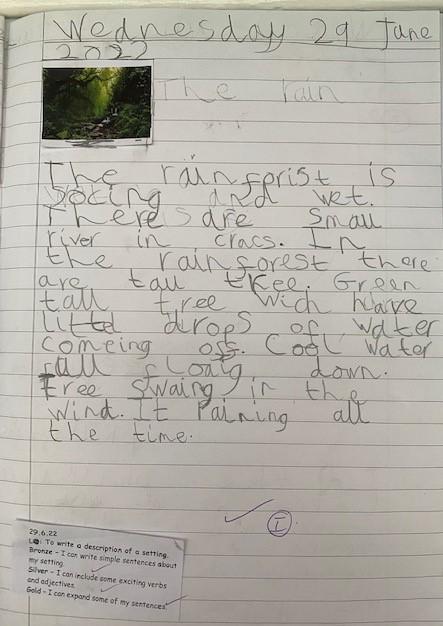 Wednesday 29 June
2022
The rain
The rainforist is
and wet.
Theres are small
river in cracs. In
the rainforest there
are tall tree. Green
tall tree wich have
drops of water
comeing off. Cool water
down.
tree swaing in the
wind. It raining all
the time.
I
29.6.22
LO: To write a description of a setting.
Bronze - I can write simple sentences about
my setting.
Silver - I can include some exciting verbs
and adjectives.
Gold - I can expand some of my sentences